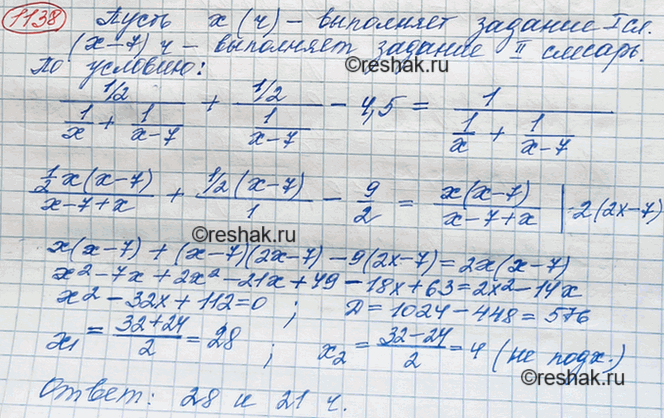 1138 Пусть x (ч) – выполняет задание I сл.
(x-7) ч – выполняет задание II слесарь.
По условию:
©reshak.ru
(1/2)/(1/x + 1/(x-7)) + (1/2)/(1/(x-7)) - 4,5 = 1/(1/x + 1/(x-7))
(1/2 x(x-7))/(x-7+x) + (1/2 (x-7))/1 - 9/2 = (x(x-7))/(x-7+x) | ·2(2x-7)
©reshak.ru
x(x-7) + (x-7)(2x-7) - 9(2x-7) = 2x(x-7)
x² - 7x + 2x² - 21x + 49 - 18x + 63 = 2x² - 14x
x² - 32x + 112 = 0 ; D = 1024 - 448 = 576
x₁ = (32+24)/2 = 28 ; x₂ = (32-24)/2 = 4 (не подх.)
©reshak.ru
Ответ: 28 и 21 ч.